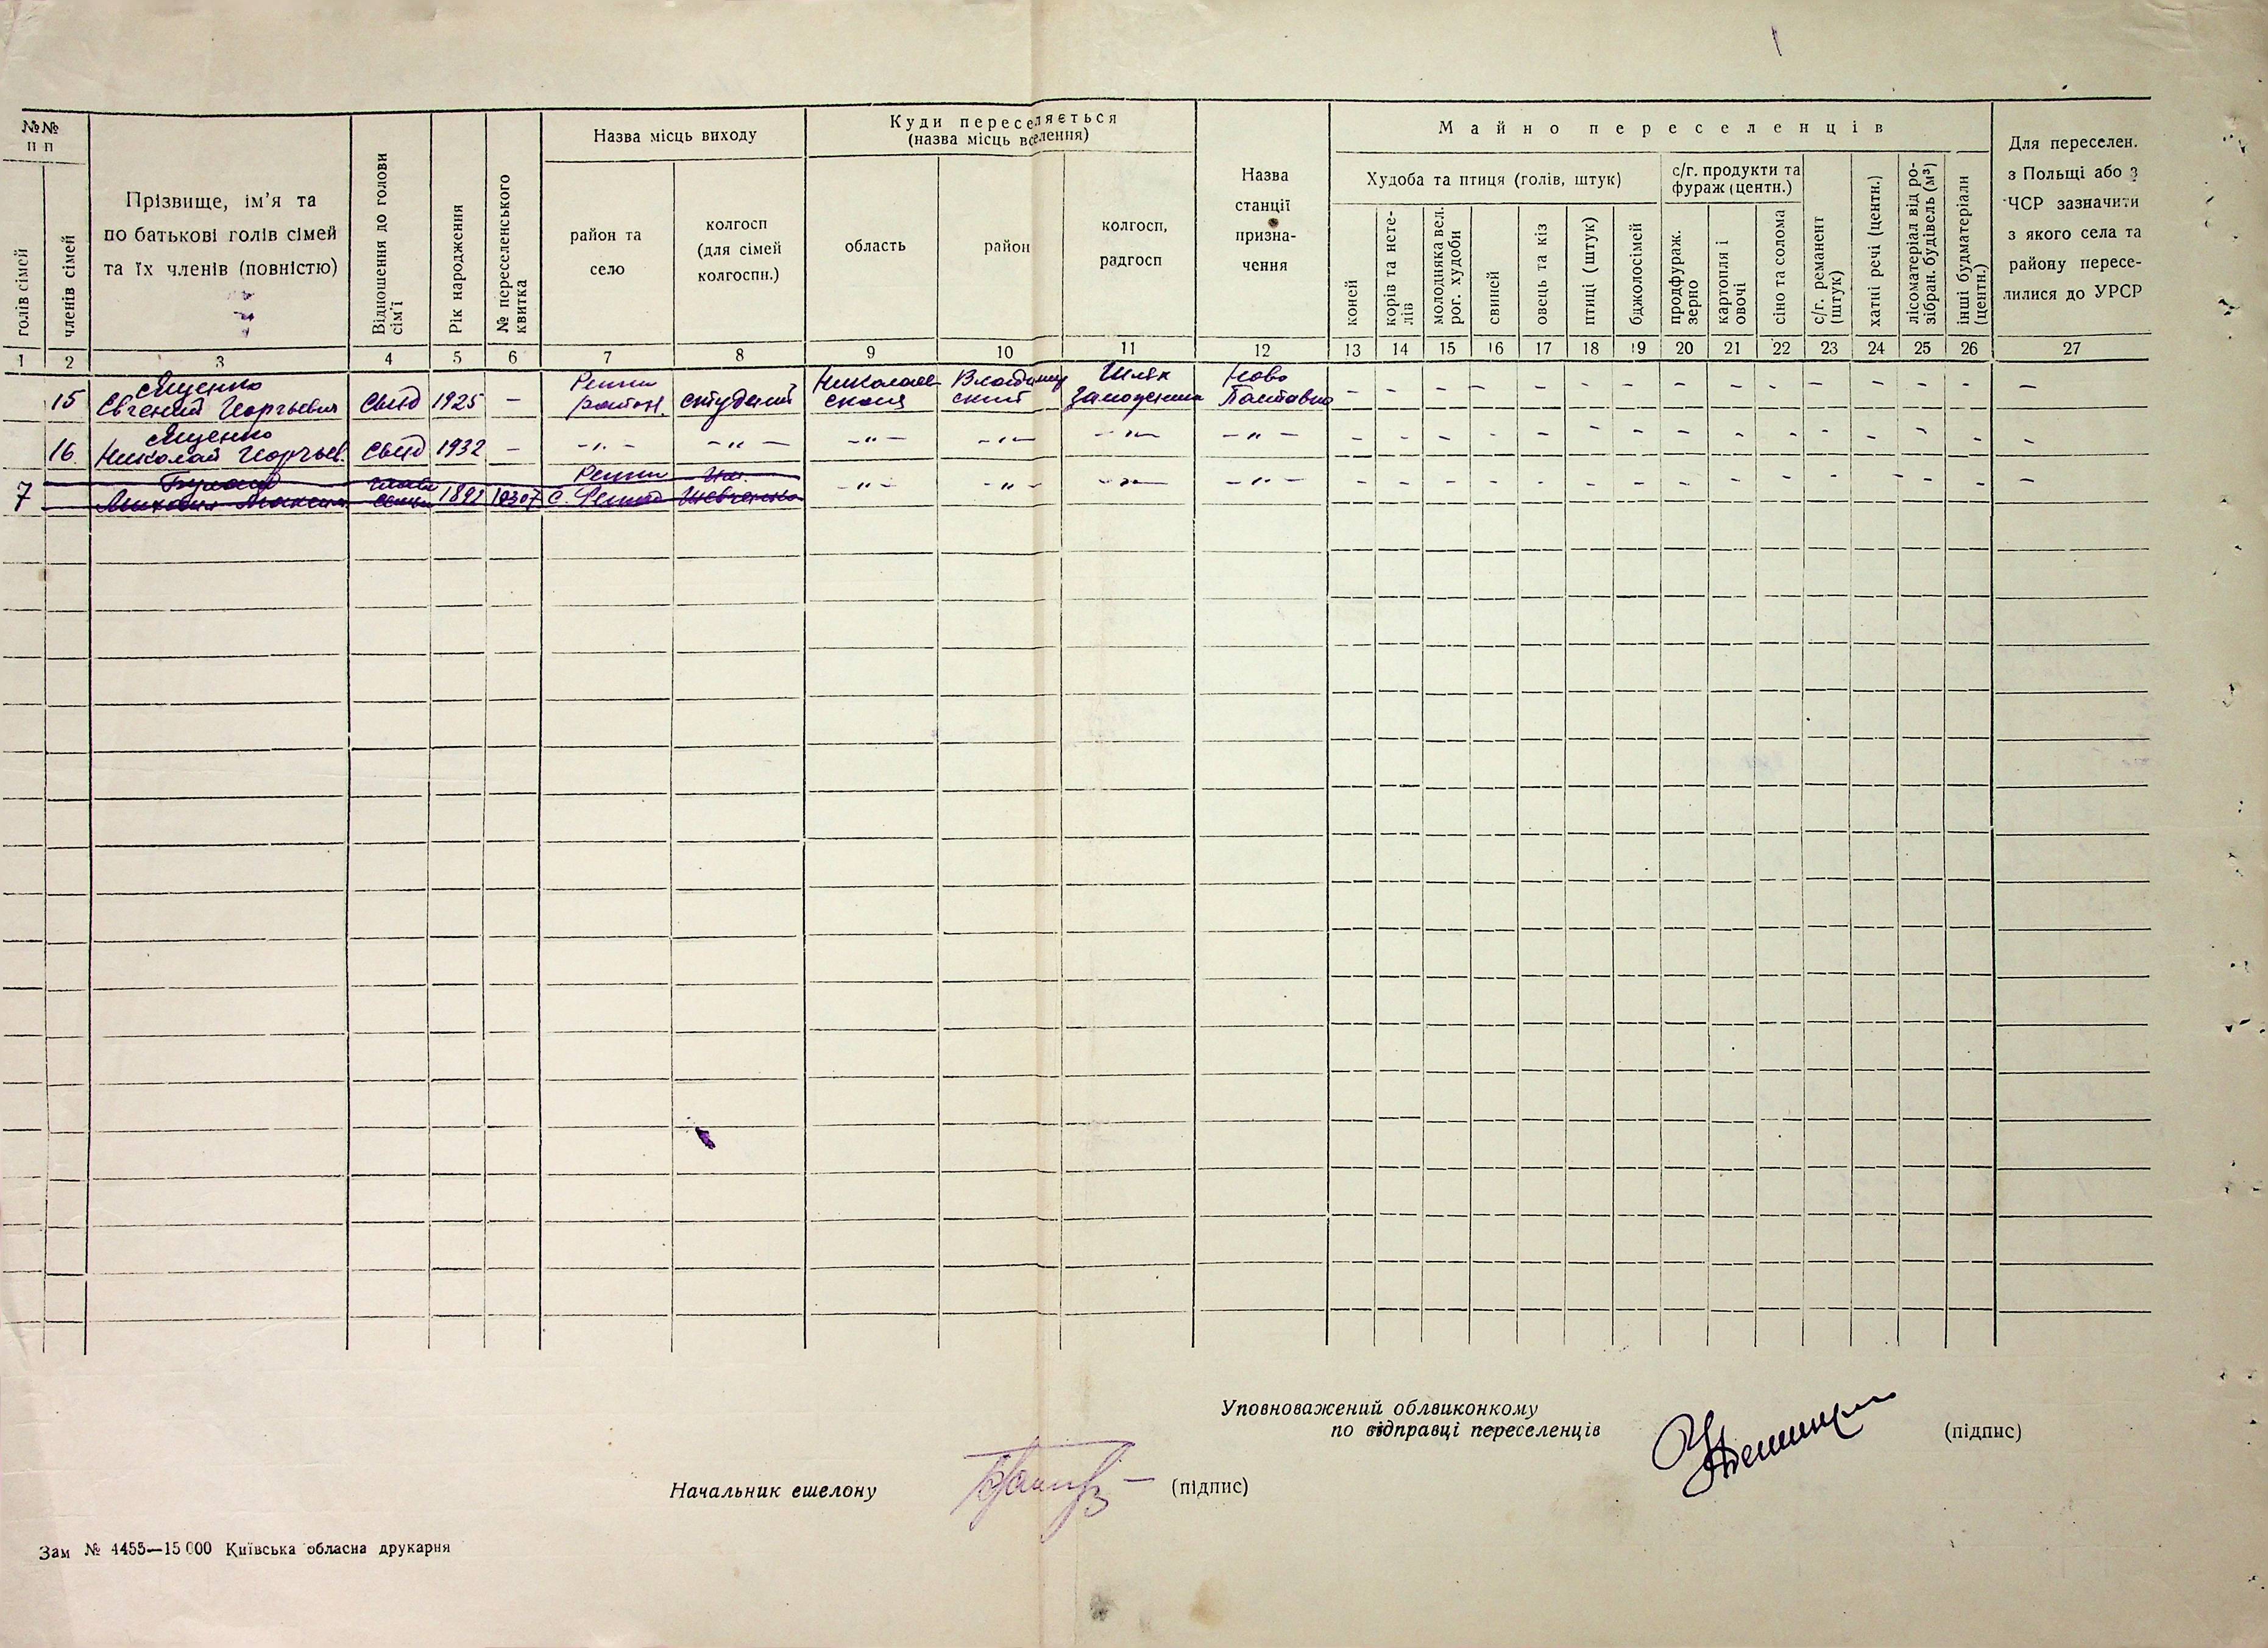 №№
п п
голів сімей
членів сімей
Прізвище, ім'я та
по батькові голів сімей
та їх членів (повністю)
Відношення до голови
сім'ї
Рік народження
№ переселенського
квитка
Назва місць виходу
район та
село
колгосп
(для сімей
колгоспн.)
Куди переселяється
(назва місць вселення)
область
район
колгосп,
радгосп
Назва
станції
призна-
чення
Майно переселенців
Худоба та птиця (голів, штук)
коней
корів та нете-
лів
молодняка вел.
рог. худоби
свиней
овець та кіз
птиці (штук)
бджолосімей
с/г. продукти та
фураж (центн.)
продфураж.
зерно
картопля і
овочі
сіно та солома
с/г. реманент
(штук)
хатні речі (центн.)
лісоматеріал від ро-
зібран. будівель (м³)
інші будматеріали
(центн.)
Для переселен.
з Польщі або з
ЧСР зазначити
з якого села та
району пересе-
лилися до УРСР
1 2 3 4 5 6 7 8 9 10 11 12 13 14 15 16 17 18 19 20 21 22 23 24 25 26 27
Ященко
15 Евгений Георгьевич сын 1925 — район. студент
Шлях
Ново
Ященко
16 Николай Георгьев. сын 1932 — -"- -"- -"- -"- -"- -"-
7 1892 10307 Шевченко -"- -"- -"- -"-
Уповноважений облвиконкому
по відправці переселенців (підпис)
Начальник ешелону (підпис)
Зам № 4455—15 000 Київська обласна друкарня